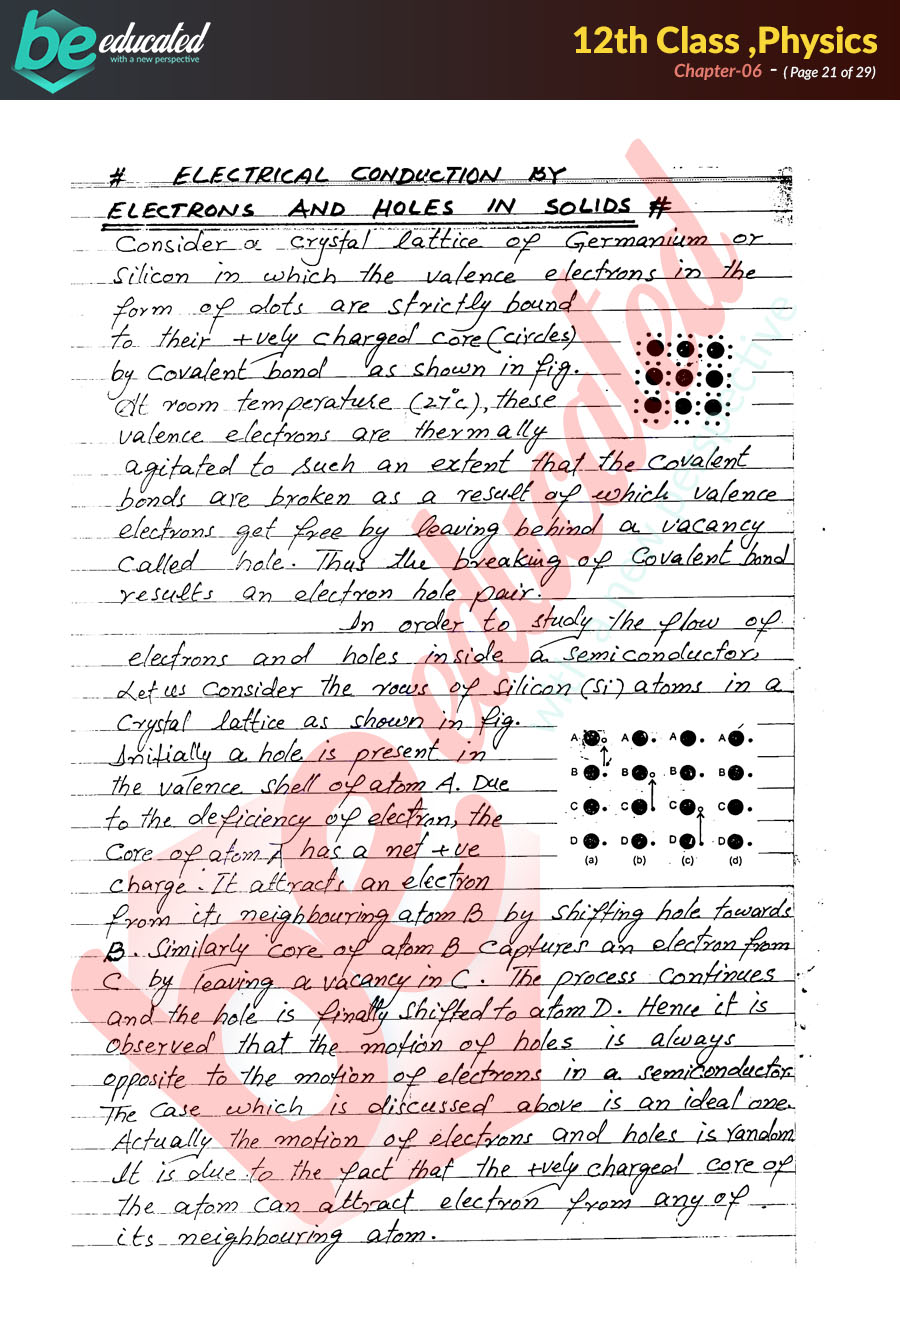 be educated
with a new perspective
12th Class ,Physics
Chapter-06 - ( Page 21 of 29)
# ELECTRICAL CONDUCTION BY
ELECTRONS AND HOLES IN SOLIDS #
Consider a crystal lattice of Germanium or
Silicon in which the valence electrons in the
form of dots are strictly bound
to their +vely charged core (circles)
by Covalent bond as shown in fig.
At room temperature (27°c), these
valence electrons are thermally
agitated to such an extent that the covalent
bonds are broken as a result of which valence
electrons get free by leaving behind a vacancy
called hole. Thus the breaking of Covalent bond
results an electron hole pair.
In order to study the flow of
electrons and holes inside a semiconductor,
Let us Consider the rows of Silicon (Si) atoms in a
Crystal lattice as shown in fig.
Initially a hole is present in
the valence shell of atom A. Due
to the deficiency of electron, the
Core of atom A has a net +ve
charge. It attracts an electron
from its neighbouring atom B by shifting hole towards
B. Similarly core of atom B captures an electron from
C by leaving a vacancy in C. The process continues
and the hole is finally shifted to atom D. Hence it is
observed that the motion of holes is always
opposite to the motion of electrons in a semiconductor.
The case which is discussed above is an ideal one.
Actually the motion of electrons and holes is random
It is due to the fact that the +vely charged core of
the atom can attract electron from any of
its neighbouring atom.
A A A A
B B B B
C C C C
D D D D
(a) (b) (c) (d)
be educated
with a new perspective